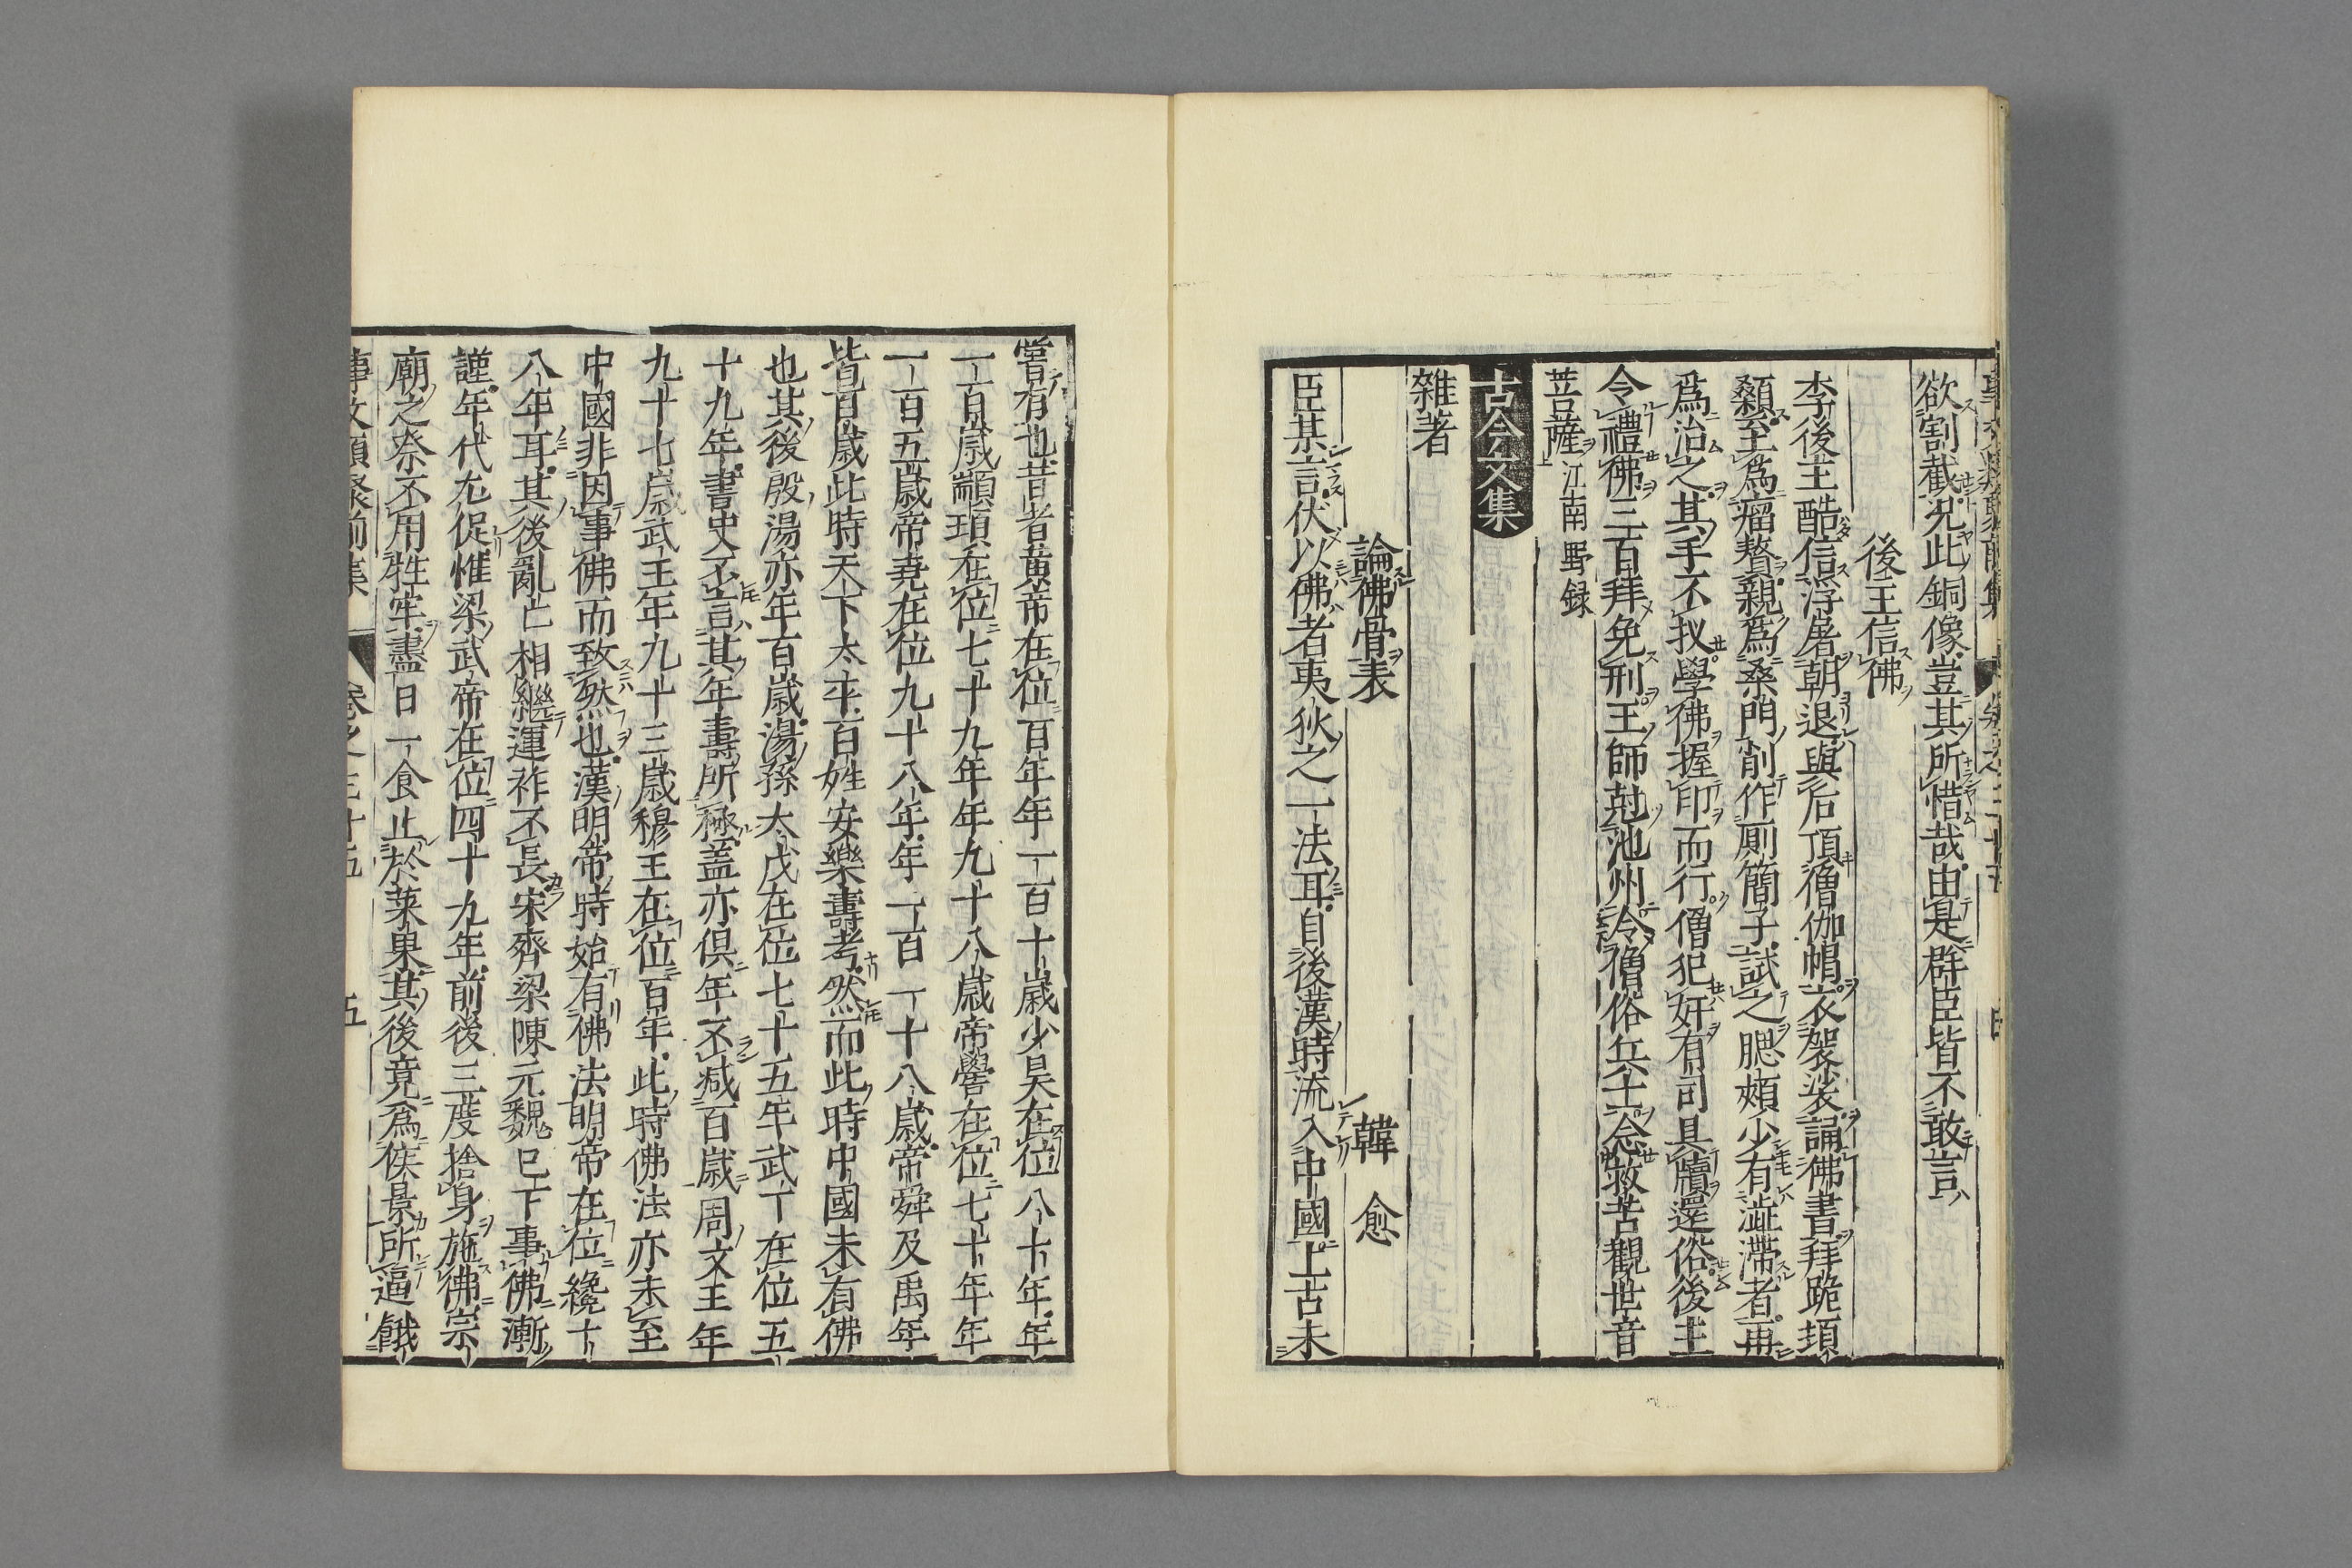 欲割截況此銅像豈其所惜哉由是群臣皆不敢言
後主信佛
李後主酷信浮屠朝退與后頂僧伽帽衣袈裟誦佛書拜跪頓
顙至爲瘤贅親爲桑門削作厠簡子試之腮頰少有澁滯者再
爲治之其手不扠學佛握印而行僧犯奸有司具牘還俗後主
令禮佛三百拜免刑王師尅池州令僧俗兵士念救苦觀世音
菩薩江南野録
古今文集
雜著
論佛骨表　韓愈
臣某言伏以佛者夷狄之一法耳自後漢時流入中國上古未
嘗有也昔者黃帝在位百年年一百十歲少昊在位八十年年
一百歲顓頊在位七十九年年九十八歲帝嚳在位七十年年
一百五歲帝堯在位九十八年年一百一十八歲帝舜及禹年
皆百歲此時天下太平百姓安樂壽考然而此時中國未有佛
也其後殷湯亦年百歲湯孫太戊在位七十五年武丁在位五
十九年書史不言其年壽所極盖亦俱年不減百歲周文王年
九十七歲武王年九十三歲穆王在位百年此時佛法亦未至
中國非因事佛而致然也漢明帝時始有佛法明帝在位纔十
八年耳其後亂亡相繼運祚不長宋齊梁陳元魏已下事佛漸
謹年代尤促惟梁武帝在位四十九年前後三度捨身施佛宗
廟之祭不用牲牢盡日一食止於菜果其後竟爲侯景所逼餓
事文類聚前集　卷之三十五　五